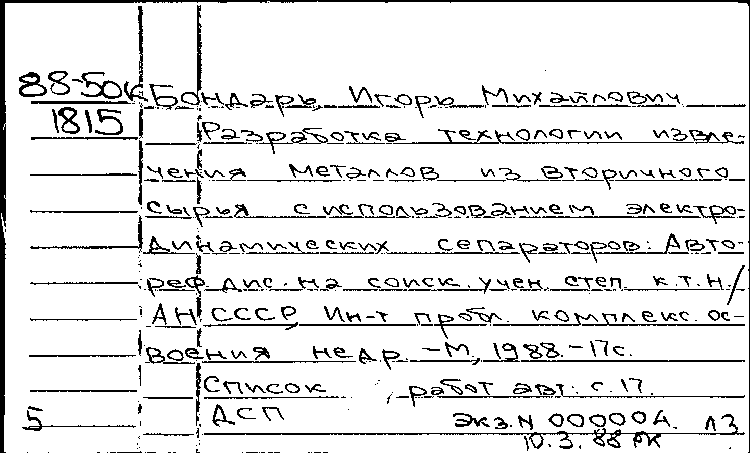 88-50к Бондарь, Игорь Михайлович
1815 Разработка технологии извле-
чения металлов из вторичного
сырья с использованием электро-
динамических сепараторов: Авто-
реф. дис. на соиск. учен. степ. к.т.н./
АН СССР, Ин-т пробл. комплекс. ос-
воения недр. -М, 1988.-17с.
Список работ авт. с. 17.
5 ДСП экз. N 000004. ЛЗ
10.3.88 РК